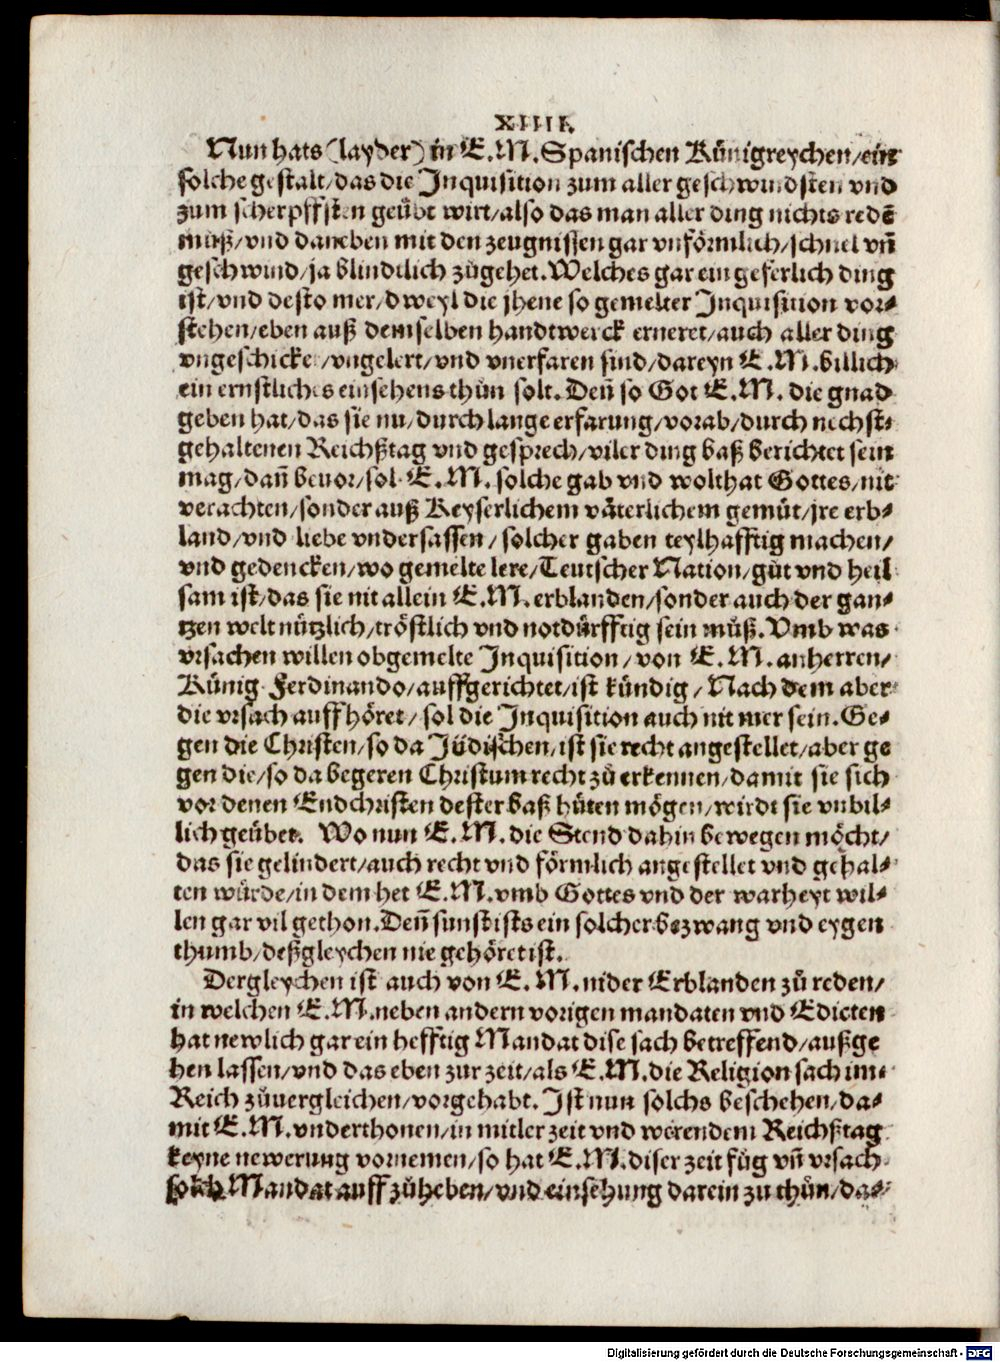 XIIII.
Nun hats (layder) in E.M. Spanischen Künigreychen/ein
solche gestalt/das die Inquisition zum aller geschwindsten vnd
zum scherpffsten geübt wirt/also das man aller ding nichts redē
muß/vnd daneben mit den zeugnissen gar vnförmlich/schnel vn̄
geschwind/ja blindtlich zůgehet. Welches gar ein geferlich ding
ist/vnd desto mer/dweyl die jhene so gemelter Inquisition vor⸗
stehen/eben auß demselben handtwerck erneret/auch aller ding
vngeschickt/vngelert/vnd vnerfaren sind/dareyn E.M. billich
ein ernstliches einsehens thůn solt. Den̄ so Got E.M. die gnad
geben hat/das sie nu/durch lange erfarung/vorab/durch nechst⸗
gehaltenen Reichßtag vnd gesprech/viler ding baß berichtet sein
mag/dan̄ beuor/sol E.M. solche gab vnd wolthat Gottes/nit
verachten/sonder auß Keyserlichem väterlichem gemüt/jre erb⸗
land/vnd liebe vndersassen/solcher gaben teylhafftig machen/
vnd gedencken/wo gemelte lere/Teutscher Nation/gůt vnd heil
sam ist/das sie nit allein E.M. erblanden/sonder auch der gan⸗
tzen welt nützlich/tröstlich vnd notdürfftig sein můß. Vmb was
vrsachen willen obgemelte Inquisition/von E.M. anherren/
Künig Ferdinando/auffgerichtet/ist kündig/Nach dem aber
die vrsach auffhöret/sol die Inquisition auch nit mer sein. Ge⸗
gen die Christen/so da Jüdischen/ist sie recht angestellet/aber ge
gen die/so da begeren Christum recht zů erkennen/damit sie sich
vor denen Endchristen dester baß hüten mögen/wirdt sie vnbil⸗
lich geübet. Wo nun E.M. die Stend dahin bewegen möcht/
das sie gelindert/auch recht vnd förmlich angestellet vnd gehal⸗
ten würde/in dem het E.M. vmb Gottes vnd der warheyt wil⸗
len gar vil gethon. Den̄ sunst ists ein solcher bezwang vnd eygen
thumb/deßgleychen nie gehöret ist.
Dergleychen ist auch von E.M. nider Erblanden zů reden/
in welchen E.M. neben andern vorigen mandaten vnd Edicten
hat newlich gar ein hefftig Mandat dise sach betreffend/außge
hen lassen/vnd das eben zur zeit/als E.M. die Religion sach im
Reich zůuergleichen/vorgehabt. Ist nun solchs beschehen/da⸗
mit E.M. vnderthonen/in mitler zeit vnd werendem Reichßtag
keyne newerung vornemen/so hat E.M. diser zeit füg vn̄ vrsach
solch Mandat auff zůheben/vnd einsehung darein zu thůn/das⸗
Digitalisierung gefördert durch die Deutsche Forschungsgemeinschaft - DFG